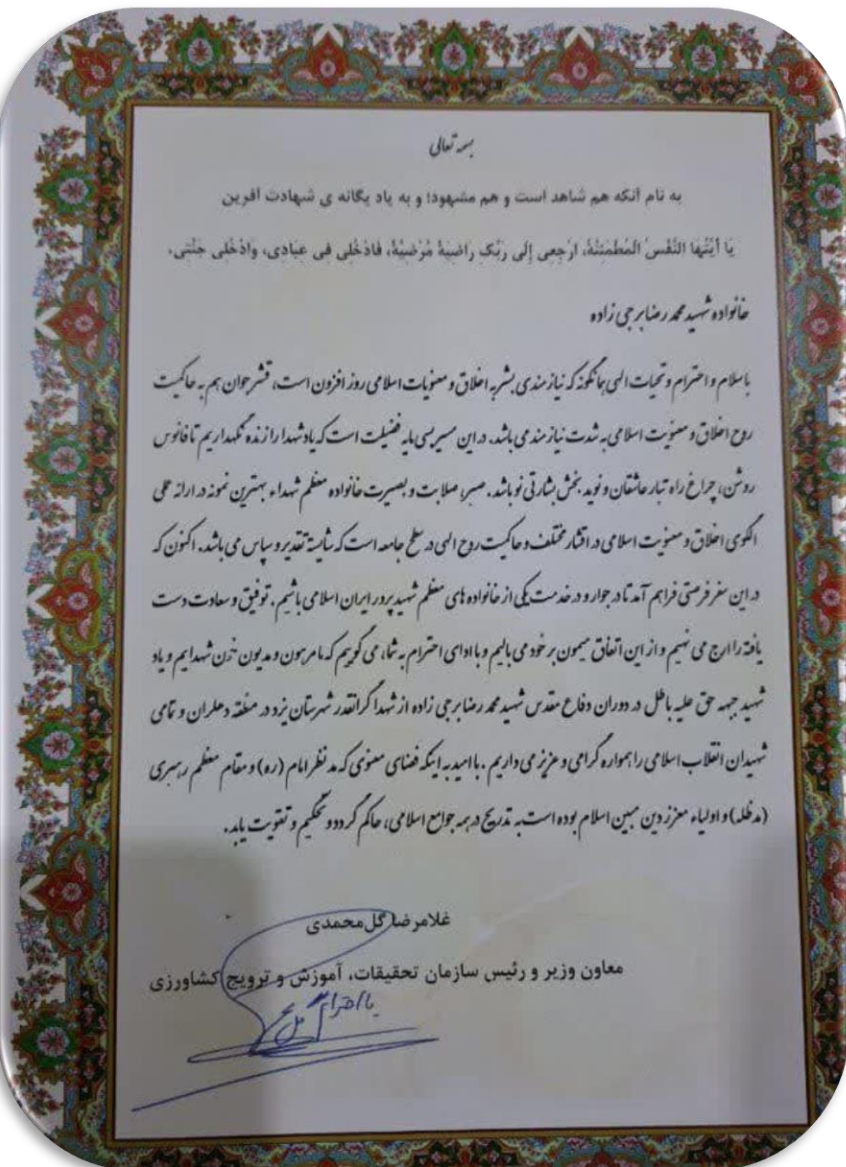 بسمه تعالی
به نام آنکه هم شاهد است و هم مشهود؛ و به یاد یگانه ی شهادت آفرین
یَا أَیَّتُهَا النَّفْسُ الْمُطْمَئِنَّةُ، ارْجِعِی إِلَى رَبِّکِ رَاضِیَةً مَّرْضِیَّةً، فَادْخُلِی فِی عِبَادِی، وَادْخُلِی جَنَّتِی،
خانواده شهید محمد رضا برجی زاده
باسلام و احترام و تحیات الهی همانگونه که نیازمندی بشر به اخلاق و معنویات اسلامی روز افزون است، قشر جوان هم به حاکمیت
روح اخلاق و معنویت اسلامی به شدت نیازمند می باشد. در این مسیر بسی مایه فضیلت است که یاد شهدا را زنده نگهداریم تا فانوس
روشن، چراغ راه تبار عاشقان و نوید بخش بشارتی نو باشد. صبر، صلابت و بصیرت خانواده معظم شهداء بهترین نمونه در ارائه عملی
الگوی اخلاق و معنویت اسلامی در اقشار مختلف و حاکمیت روح الهی در سطح جامعه است که شایسته تقدیر و سپاس می باشد. اکنون که
در این سفر فرصتی فراهم آمد تا در جوار و در خدمت یکی از خانواده های معظم شهید پرور ایران اسلامی باشیم. توفیق و سعادت دست
یافته را ارج می نهیم و از این اتفاق میمون بر خود می بالیم و با ادای احترام به شما، می گوییم که ما مرهون و مدیون خون شهدایم و یاد
شهید جبهه حق علیه باطل در دوران دفاع مقدس شهید محمد رضا برجی زاده از شهدا گرانقدر شهرستان یزد در منطقه دهلران و تمامی
شهیدان انقلاب اسلامی را همواره گرامی و عزیز می داریم. با امید به اینکه فضای معنوی که مد نظر امام (ره) و مقام معظم رهبری
(مدظله) و اولیاء معزز دین مبین اسلام بوده است به تدریج در همه جوامع اسلامی، حاکم گردد و تحکیم و تقویت یابد.
غلامرضا گل‌محمدی
معاون وزیر و رئیس سازمان تحقیقات، آموزش و ترویج کشاورزی
با احترام